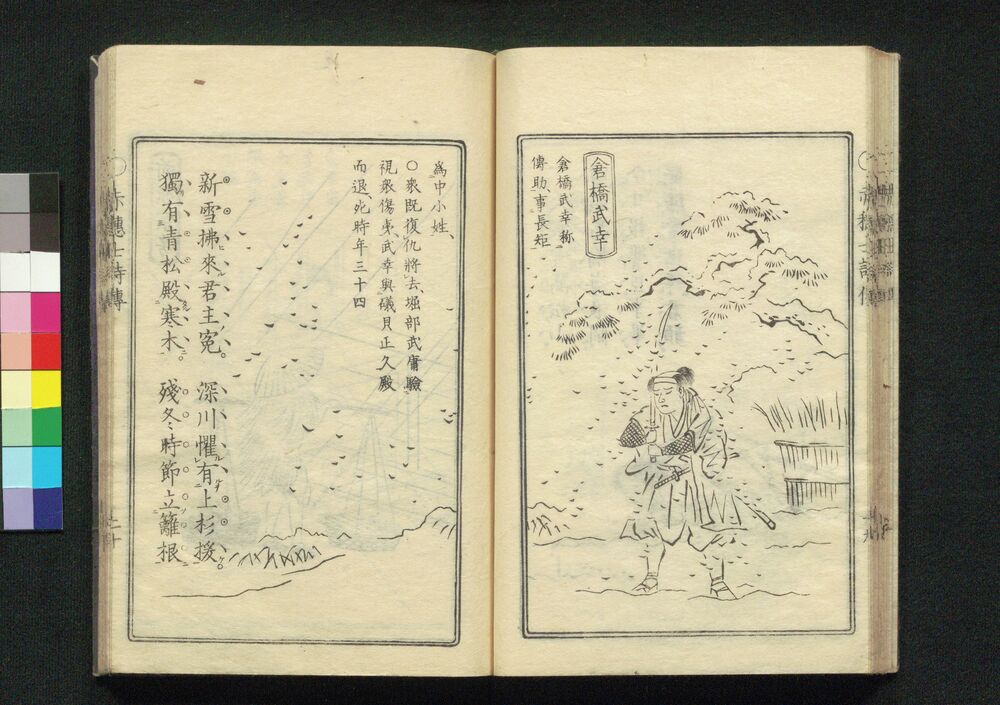 倉橋武幸
倉橋武幸称
傳助、事長矩
爲中小姓、
〇衆既復仇將去、堀部武庸驗
視衆傷夷、武幸與礒貝正久殿
而退、死時年三十四
新雪拂來君主冤。深川懼有上杉援。
獨有青松殿寒木。殘冬時節立籬根
赤穗士詩傳